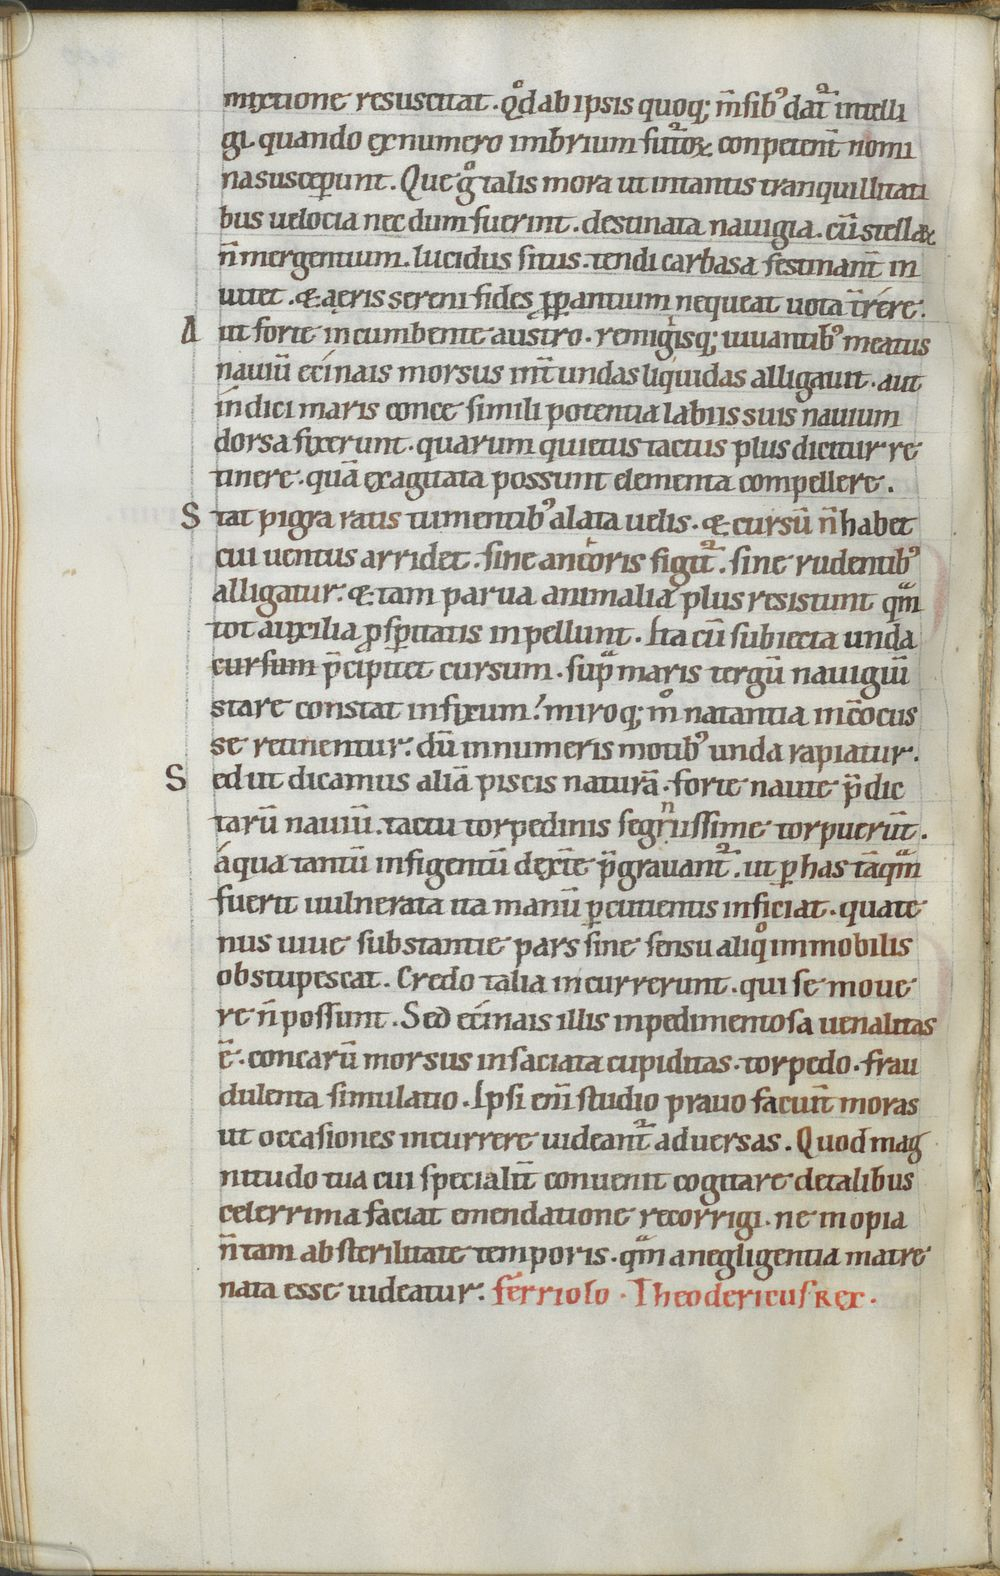 mixtione resuscitat. Qd̊ ab ipsis quoq; m̄sib᾽ dat᷑ intelli
gi. quando ex numero imbrium futoꝝ conpetent̄ nomi
na susceperunt. Que g̊ talis mora ut intantis tranquillitati
bus uelocia nec dum fuerint. destinata nauigia. cū stellaꝝ
n̄ mergentium. lucidus situs. tendi carbasa festinant̄ in
uitet. & aeris sereni fides ꝓꝑantium nequeat uota t̄rere.
Aut forte incumbente austro. remigijsq; iuuantib᾽ meatus
nauiū ecinais morsus int̄ undas liquidas alligauit. aut
indici maris conce simili potentia labiis suis nauium
dorsa fixerunt. quarum quietus tactus plus dicitur re
tinere. quā exagitata possunt elementa compellere.
Stat pigra ratis tumentib᾽ alata uelis. & cursū n̄ habet
cui uentus arridet. sine ancoris figit᷑. sine rudentib᾽
alligatur. & tam parua animalia plus resistunt qm̄
tot auxilia ꝓsꝑitatis inpellunt. Ita cū subiecta unda
cursum p̄cipitet cursum. sup maris tergū nauigiū
stare constat infixum. miroq; m̊ natantia inc̄ocus
se retinentur. dū innumeris motib᾽ unda rapiatur.
Sed ut dicamus aliā piscis naturā. forte naute p̄dic
tarū nauiū. tactu torpedinis segnissime torpuerūt.
a qua tantū infigentū dext̄e p̄grauant᷑. ut ꝑ has tāqm̄
fuerit uulnerata ita manū ꝑcutientis inficiat. quate
nus uiue substantie pars sine sensu aliq̊ immobilis
obstupescat. Credo talia incurrerunt. qui se moue
re n̄ possunt. Sed ecinais illis inpedimentosa uenalitas
ē. concarū morsus insaciata cupiditas. torpedo. frau
dulenta simulatio. Ipsi enī studio prauo faciunt̄ moras
ut occasiones incurrere uideant᷑ aduersas. Quod mag
nitudo tua cui specialit̄ conuenit cogitare de talibus
celerrima faciat emendatione recorrigi. ne inopia
n̄ tam ab sterilitate temporis. qm̄ a negligentia matre
nata esse uideatur. ferriolo. Theodericus Rex.